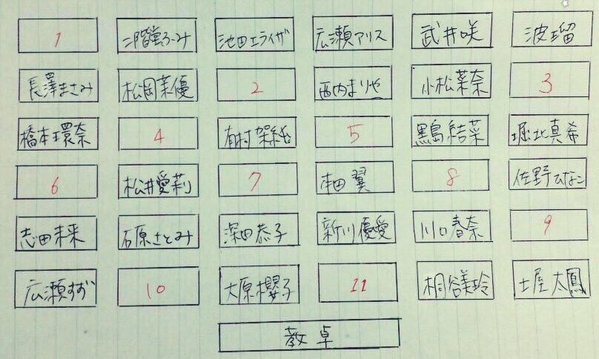 1 二階堂ふみ 池田エライザ 広瀬アリス 武井咲 波瑠
長澤まさみ 松岡茉優 2 西内まりや 小松菜奈 3
橋本環奈 4 有村架純 5 黒島結菜 堀北真希
6 松井愛莉 7 本田翼 8 佐野ひなこ
志田未来 石原さとみ 深田恭子 新川優愛 川口春奈 9
広瀬すず 10 大原櫻子 11 桐谷美玲 土屋太鳳
教卓